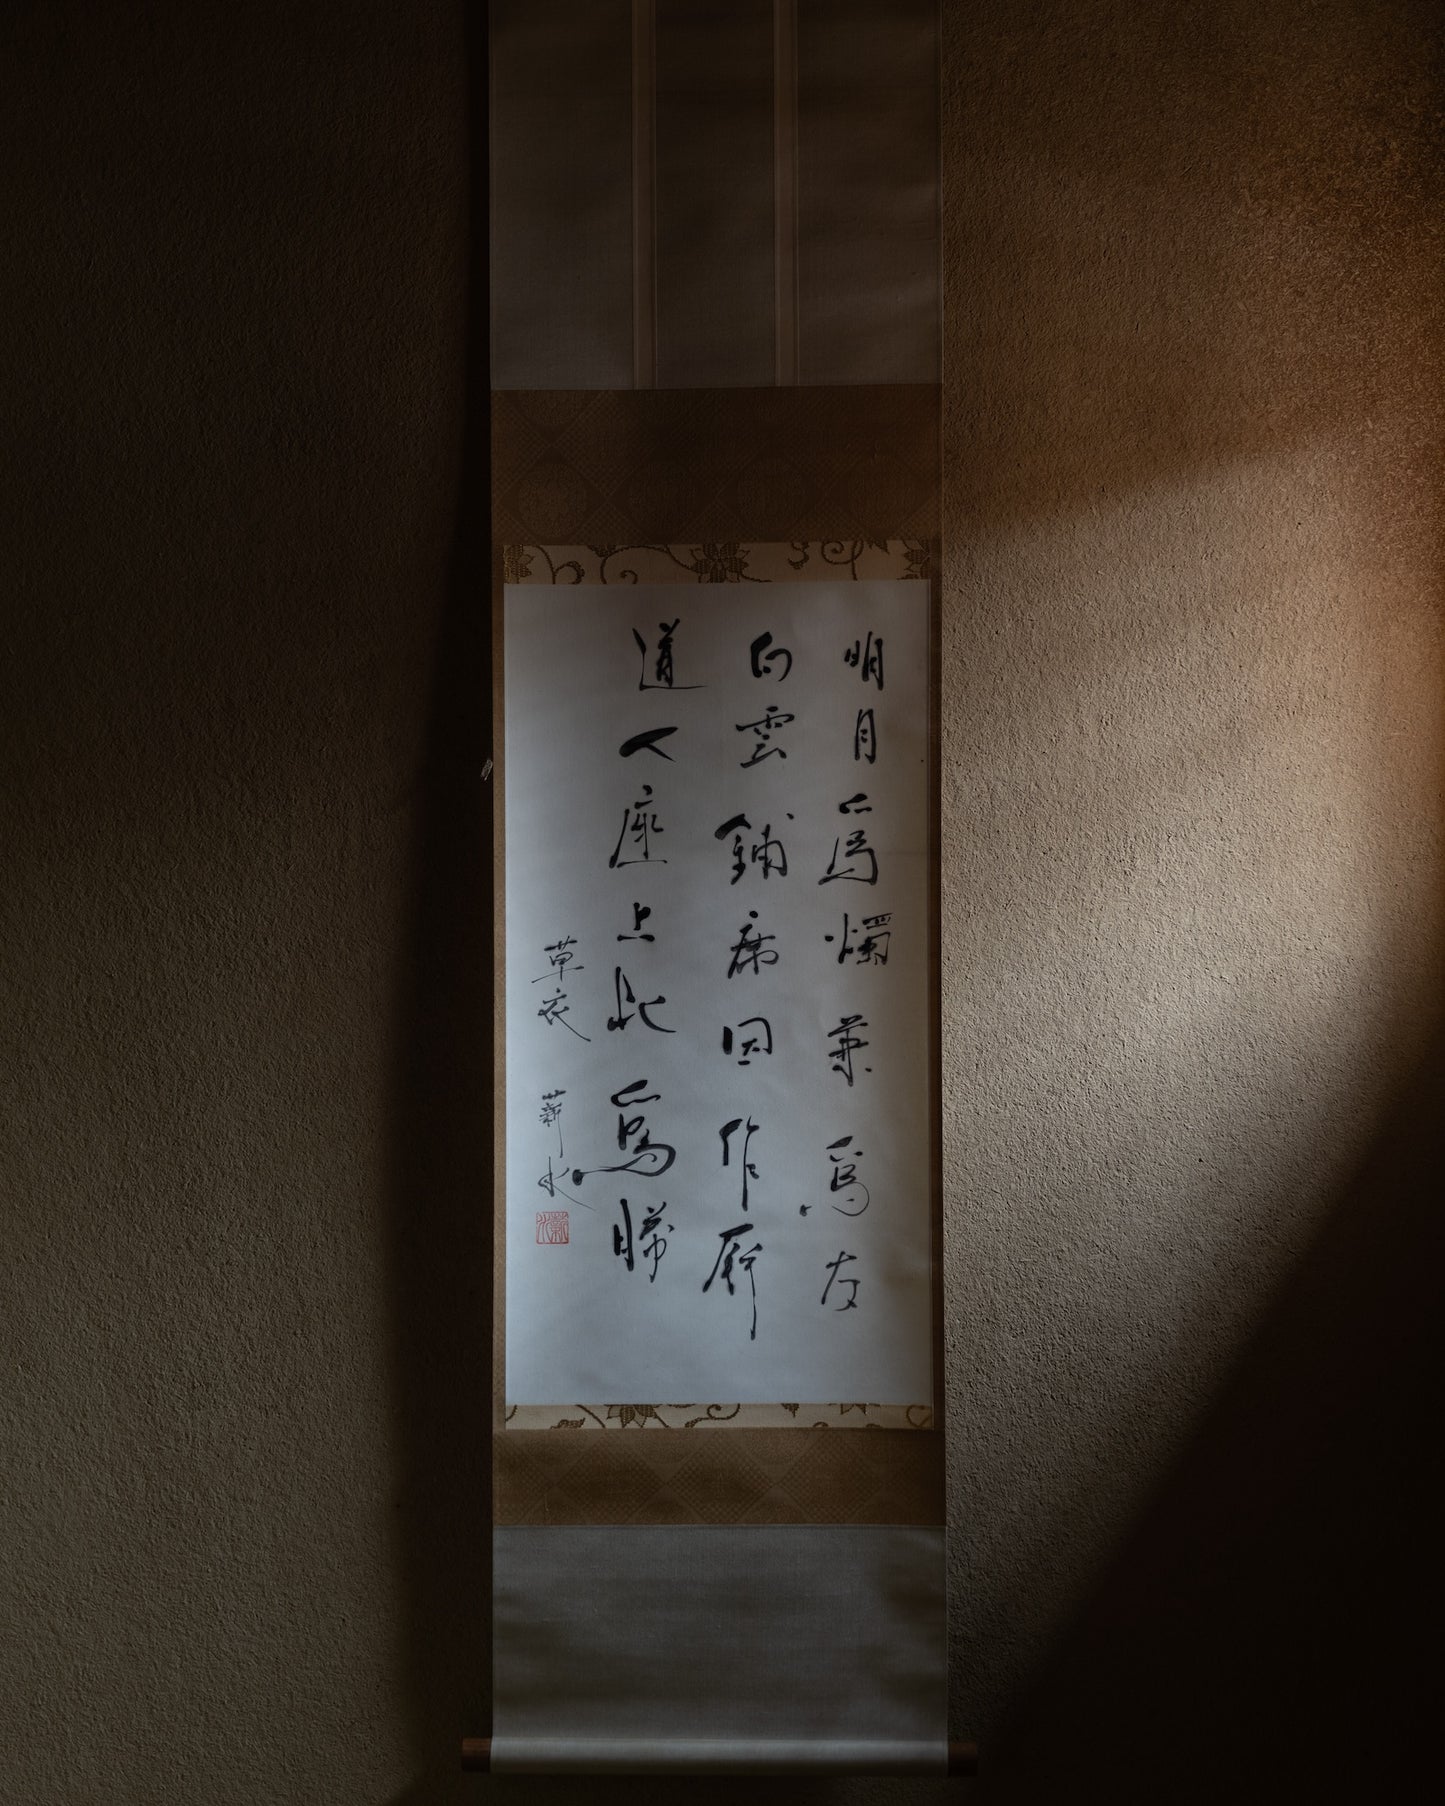 明月爲燭兼爲友
白雲鋪席因作屛
道人座上此爲勝
草衣
蘄水